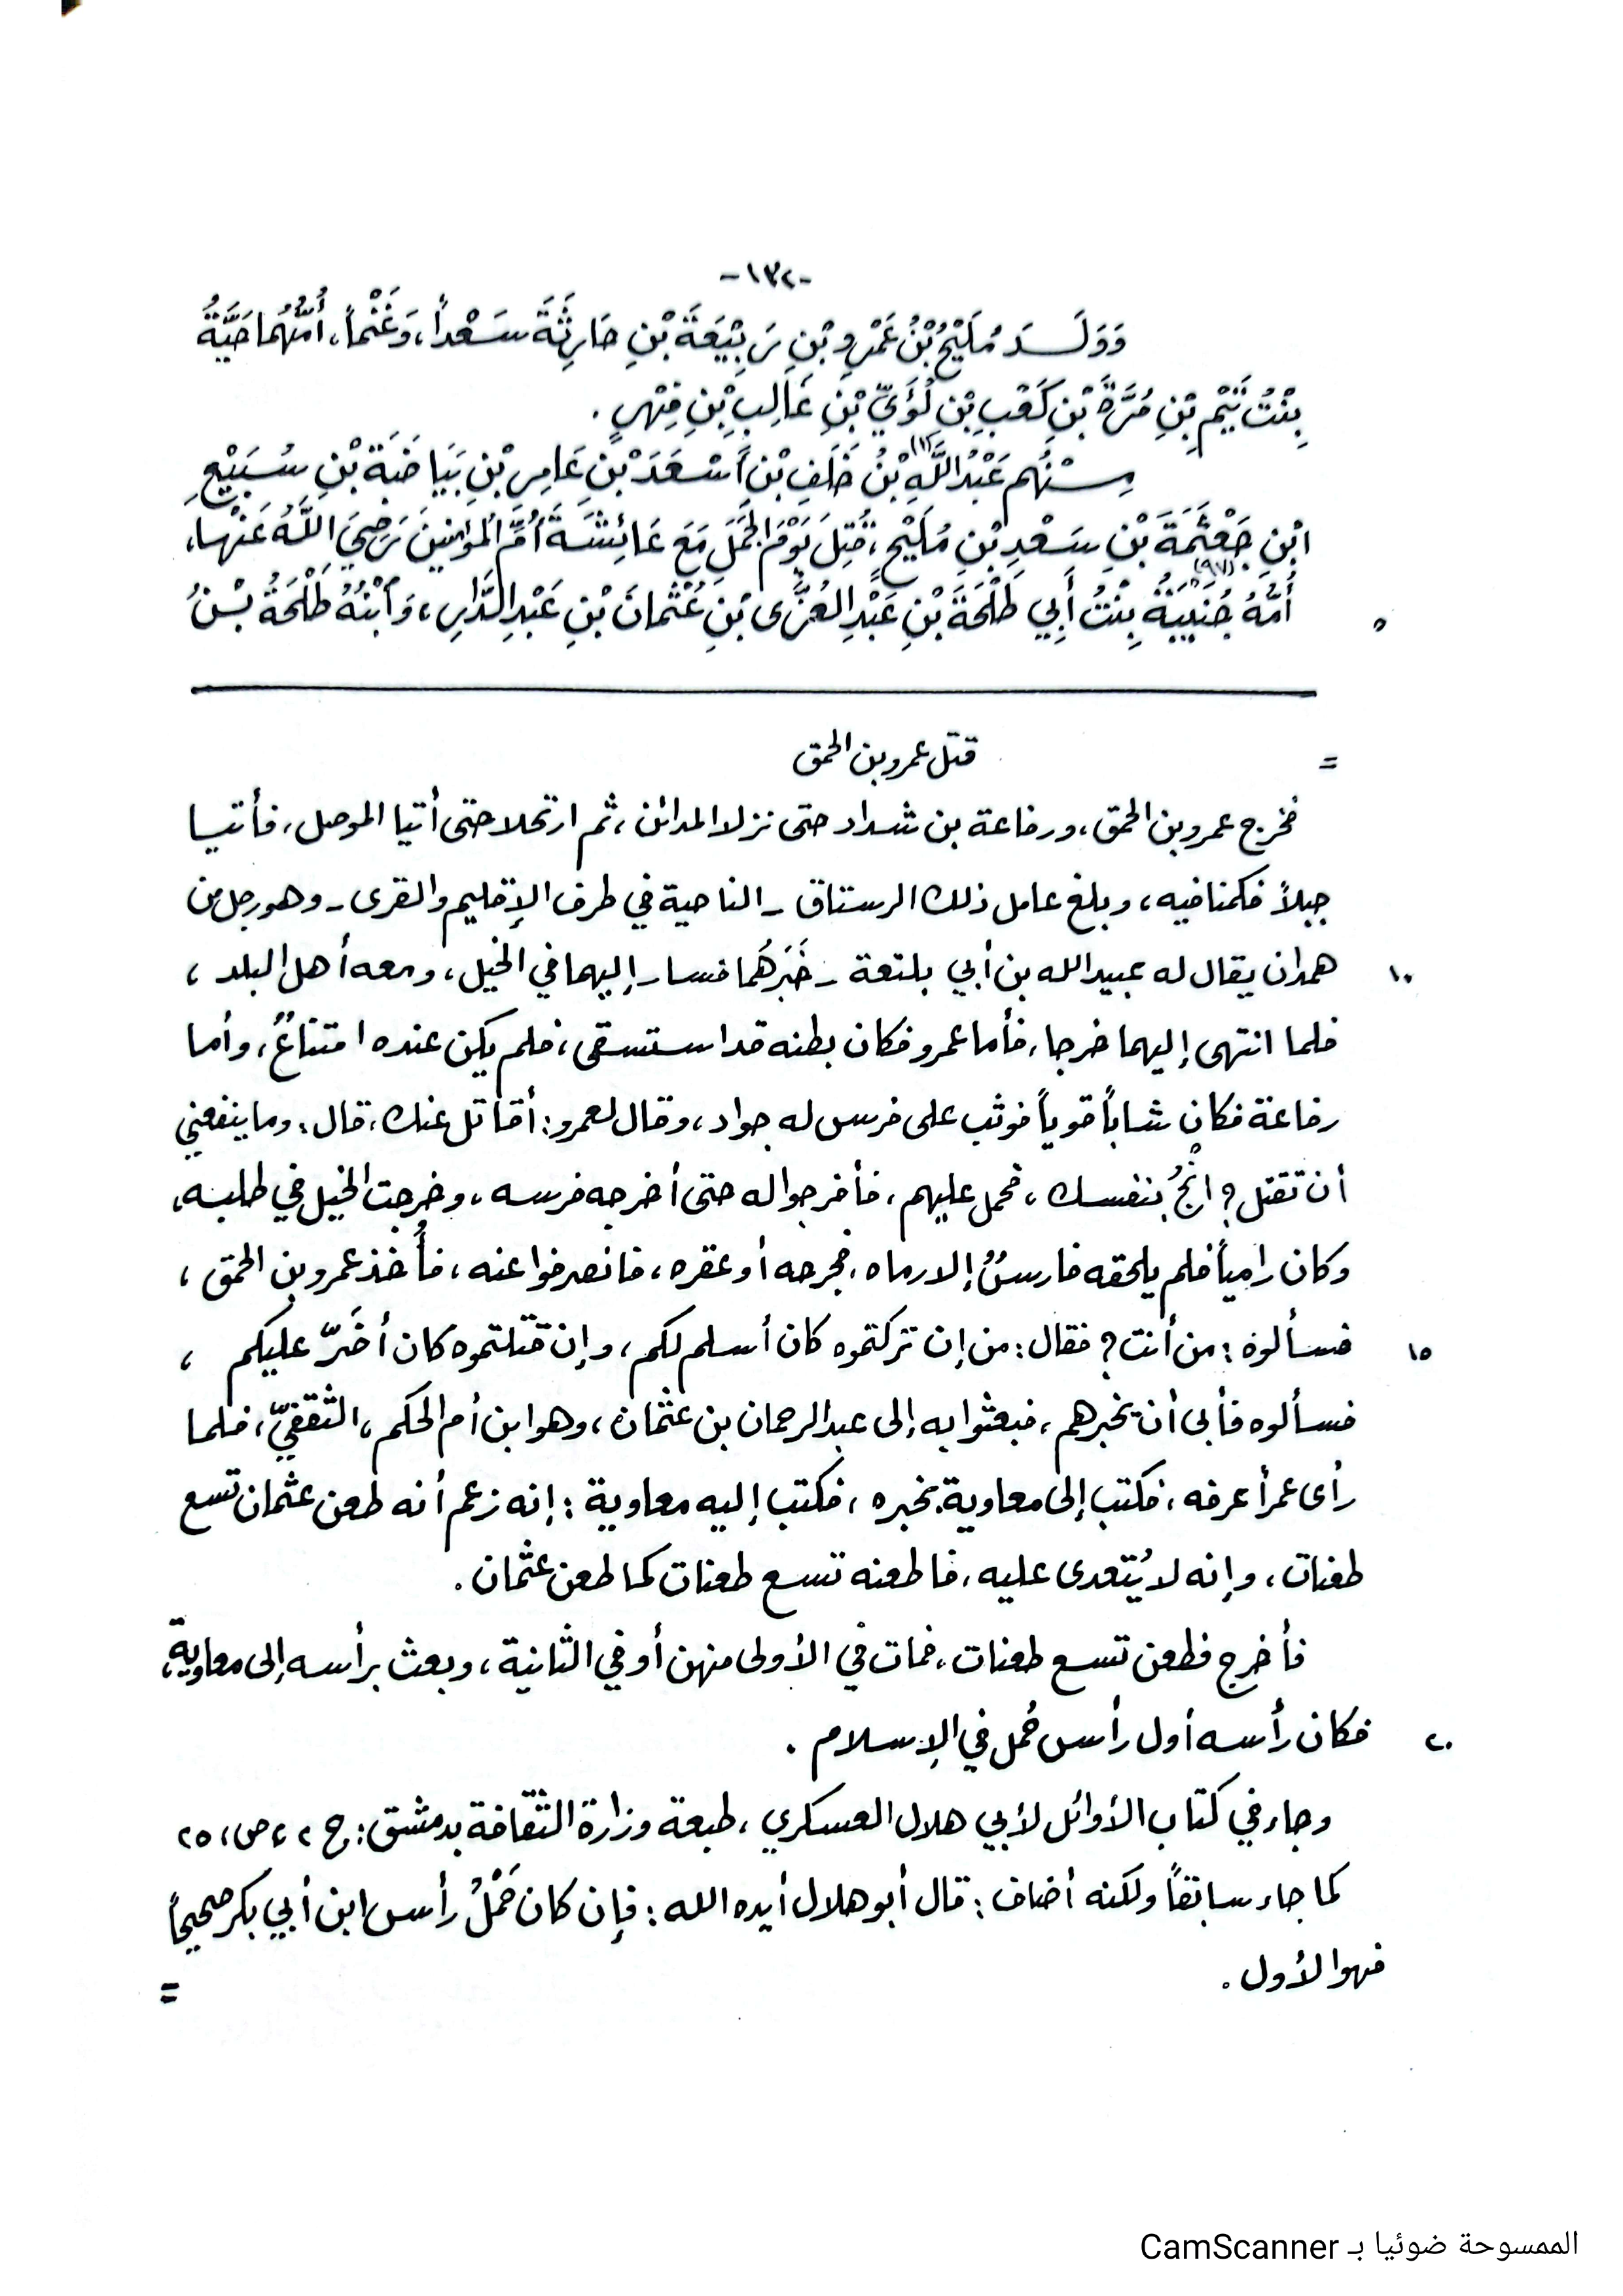 -١٣٢-
وَوَلَدَ مُلَيْحُ بْنُ عَمْرِو بْنِ رَبِيْعَةَ بْنِ حَارِثَةَ سَعْداً، وَغَنْماً، أُمُّهُمَا حَيَّةُ
بِنْتُ تَيْمِ بْنِ مُرَّةَ بْنِ كَعْبِ بْنِ لُؤَيِّ بْنِ غَالِبِ بْنِ فِهْرٍ .
مِنْهُم عَبْدُ اللَّهِ (١) بْنُ خَلَفِ بْنِ أَسْعَدَ بْنِ عَامِرِ بْنِ بَيَاضَةَ بْنِ سُبَيْعِ
ابْنِ جَعْثَمَةَ بْنِ سَعْدِ بْنِ مُلَيْحٍ، قُتِلَ يَوْمَ الجَمَلِ مَعَ عَائِشَةَ أُمِّ المُؤْمِنِينَ رَضِيَ اللَّهُ عَنْهَا،
٥ أُمُّهُ جُنَيْبَةُ (٩٧) بِنْتُ أَبِي طَلْحَةَ بْنِ عَبْدِ العُزَّى بْنِ عُثْمَانَ بْنِ عَبْدِ الدَّارِ، وَابْنُهُ طَلْحَةُ بْنُ
= قتل عمرو بن الحمق
فخرج عمرو بن الحمق، ورفاعة بن شداد حتى نزلا المدائن، ثم ارتحلا حتى أتيا الموصل، فأتيا
جبلاً فكمنا فيه، وبلغ عامل ذلك الرستاق - الناحية في طرف الإقليم والقرى - وهو رجل من
١٠ همدان يقال له عبيد الله بن أبي بلتعة - خَبَرَهُما فسار إليهما في الخيل، ومعه أهل البلد ،
فلما انتهى إليهما خرجا، فأما عمرو فكان بطنه قد استسقى، فلم يكن عنده امتناعٌ، وأما
رفاعة فكان شاباً قوياً فوثب على فرس له جواد، وقال لعمرو: أقاتل عنك، قال: وما ينفعني
أن تقتل؟ انْجُ بنفسك، فحمل عليهم، فأفرجوا له حتى أخرجه فرسه، وخرجت الخيل في طلبه،
وكان رامياً فلم يلحقه فارسٌ إلا رماه، فجرحه أو عقره، فانصرفوا عنه، فأُخذ عمرو بن الحمق ،
١٥ فسألوه : من أنت؟ فقال: من إن تركتموه كان أسلم لكم، وإن قتلتموه كان أضَرّ عليكم ،
فسألوه فأبى أن يخبرهم، فبعثوا به إلى عبد الرحمان بن عثمان، وهو ابن أم الحكم، الثقفيّ، فلما
رأى عمراً عرفه، فكتب إلى معاوية بخبره، فكتب إليه معاوية : إنه زعم أنه طعن عثمان تسع
طعنات، وإنه لا يُتعدى عليه، فاطعنه تسع طعنات كما طعن عثمان .
فأخرج فطعن تسع طعنات، فمات في الأولى منهن أو في الثانية، وبعث برأسه إلى معاوية،
٢٠ فكان رأسه أول رأس حُمل في الإسلام .
وجاء في كتاب الأوائل لأبي هلال العسكري، طبعة وزارة الثقافة بدمشق: ج ٢، ص، ٢٥
كما جاء سابقاً ولكنه أضاف : قال أبو هلال أيده الله : فإن كان حَمْلُ رأس ابن أبي بكر صحيحاً
فهو الأول .
=
الممسوحة ضوئيا بـ CamScanner